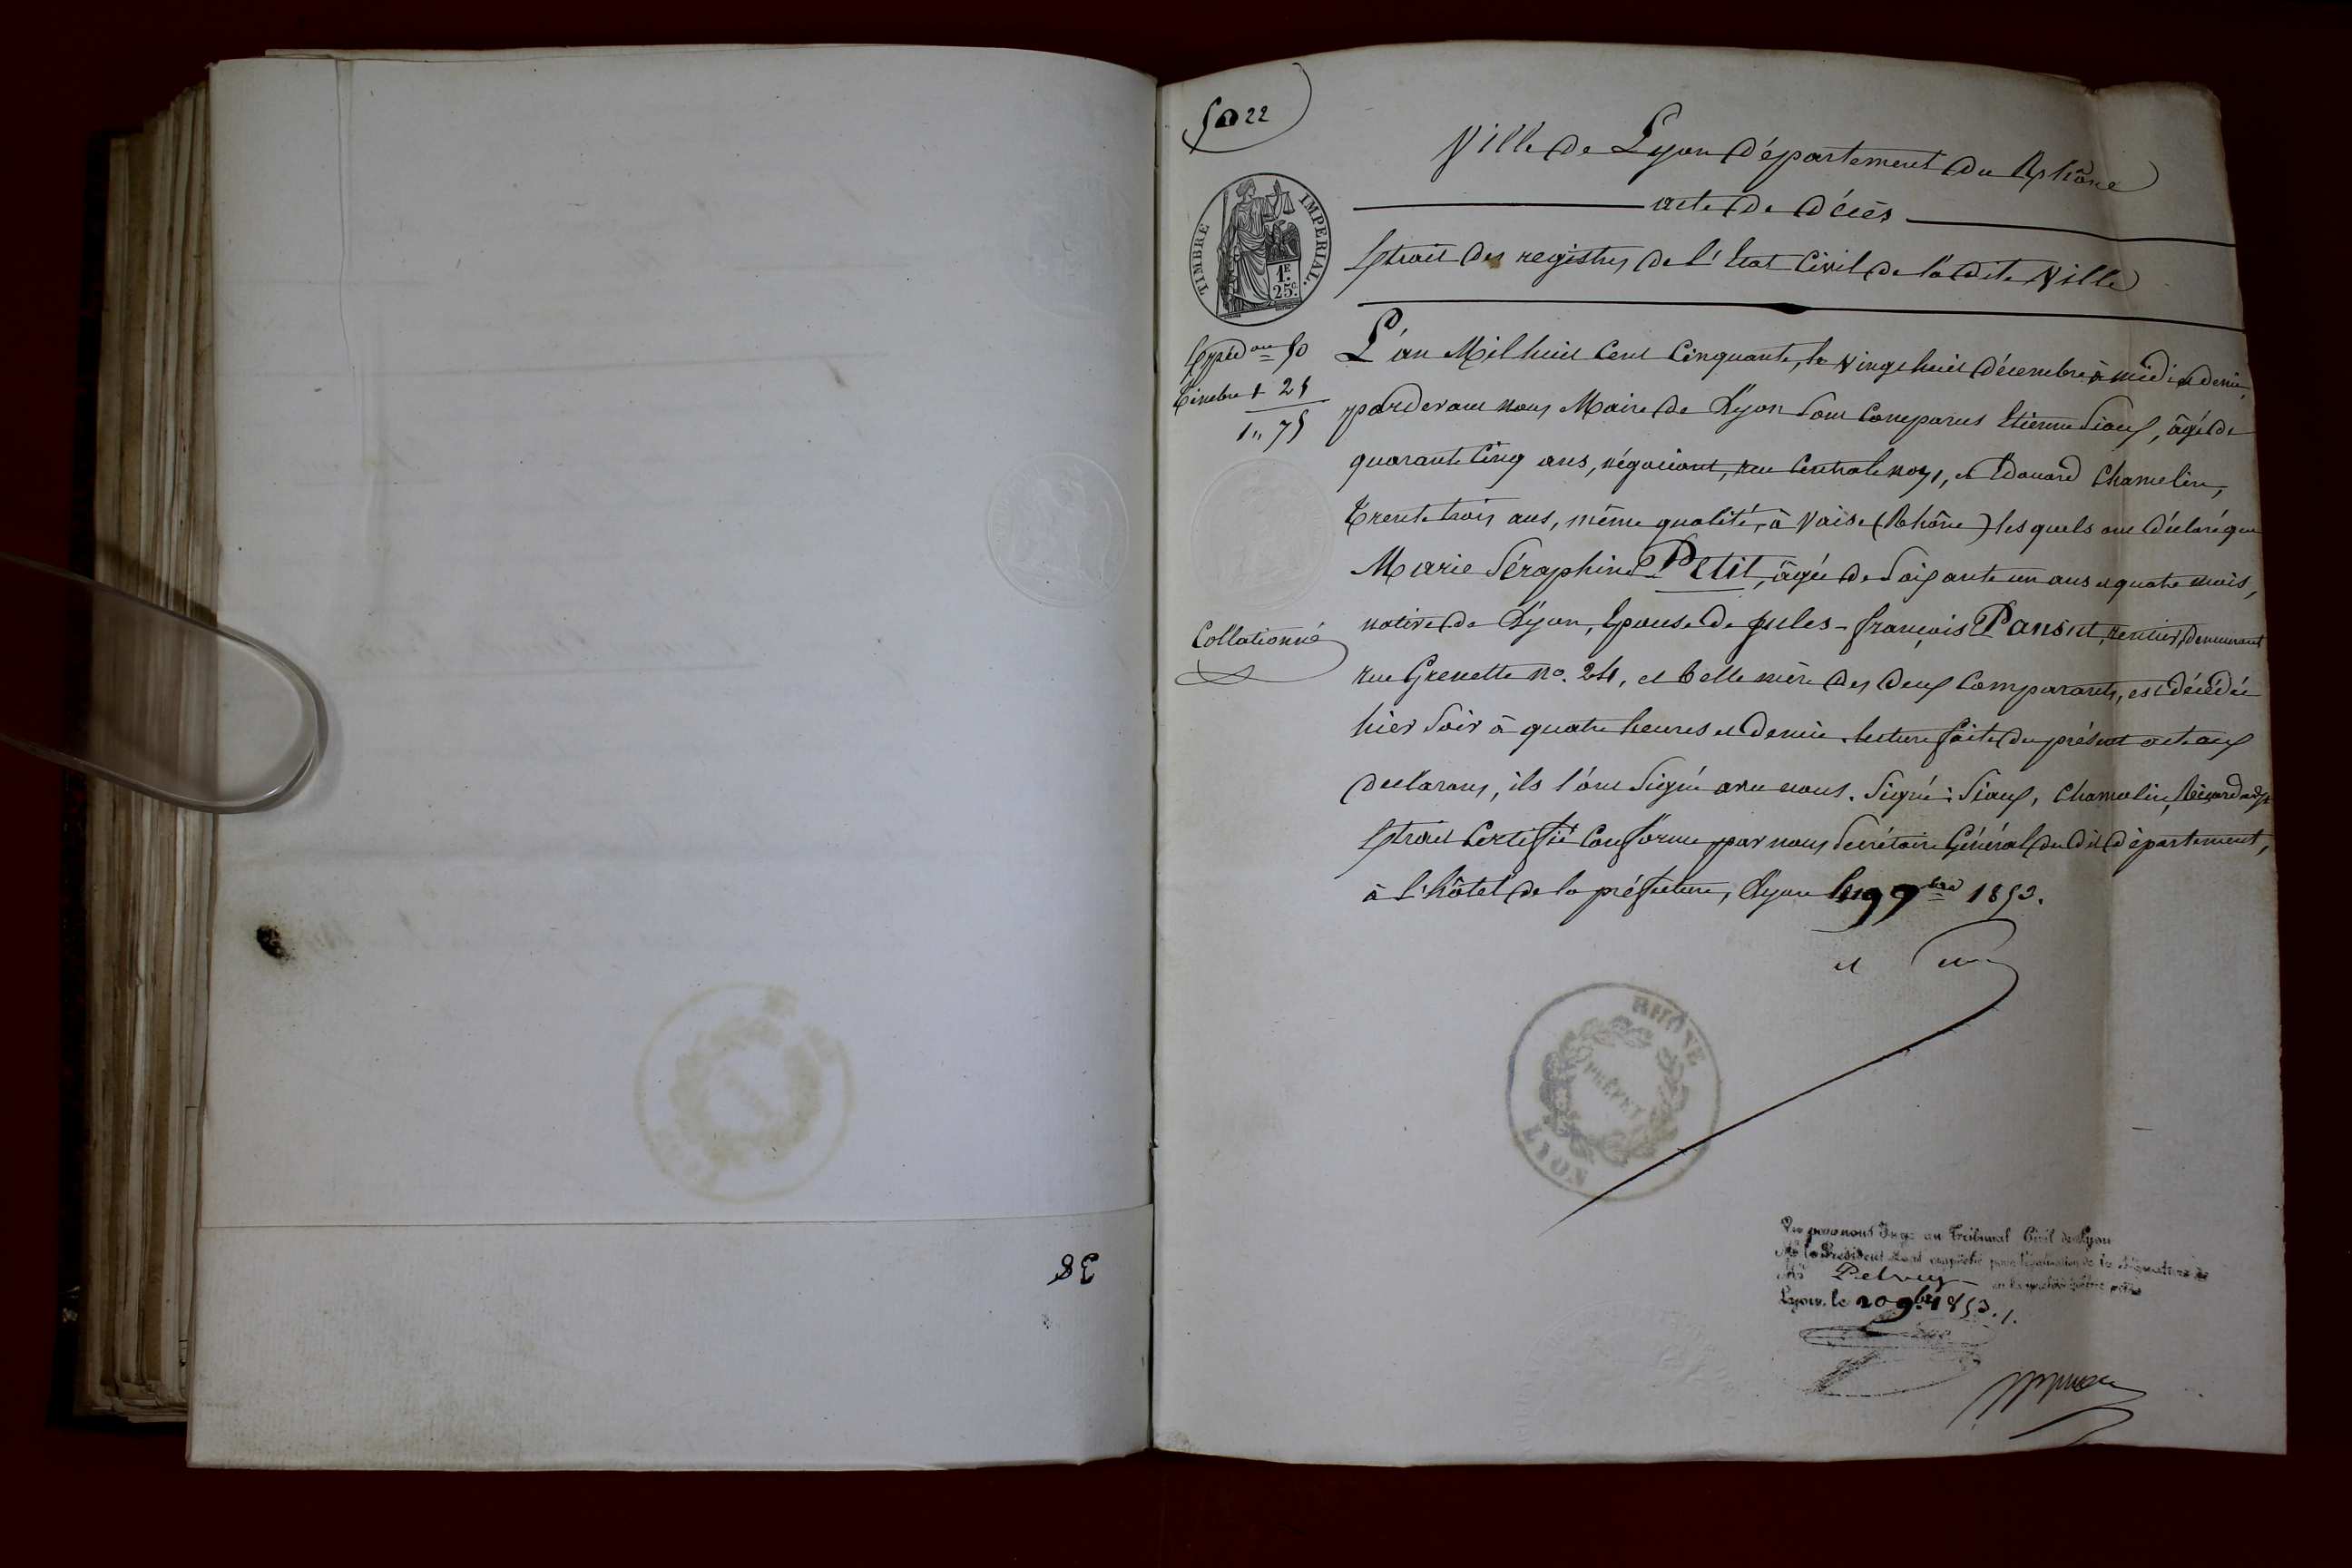 5022
Ville de Lyon département du Rhône
acte de décès
Extrait des registres de l'Etat Civil de la dite Ville
TIMBRE IMPERIAL.
1F.
25c.
Expéd on 50
Timbre 1 25
1 " 75
L'an Mil huit Cent Cinquante, le vingt huit décembre à midi et demie,
pardevant nous Maire de Lyon sont comparus Etienne Siaux, âgé de
quarante cinq ans, négociant, rue Centrale no 71, et Edouard Chamelin,
trente trois ans, même qualité, à Vaise (Rhône) lesquels ont déclaré que
Marie Séraphine Petit, âgée de Soixante un ans et quatre mois,
native de Lyon, Epouse de Jules-françois Pansut, rentier, demeurant
Collationné
rue Grenette no. 24, et belle mère des deux comparants, est décédée
hier soir à quatre heures et demie. lecture faite du présent acte aux
declarans, ils l'ont signé avec nous. Signé: Siaux, Chamelin,
Extrait Certifié Conforme par nous Secrétaire Général du dit département,
à l'hôtel de la préfecture, Lyon le 19 9bre 1853.
RHÔNE
PRÉFET
LYON
Vu par nous Juge au Tribunal Civil de Lyon
Mr le Président étant empêché pour légalisation de la Signature de
Mr Pelvey
Lyon, le 20 9bre 1853.
38